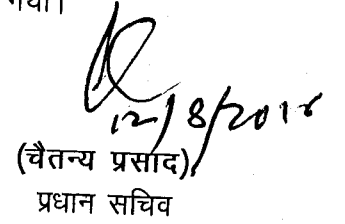 गया।
12/8/2018
(चैतन्य प्रसाद)
प्रधान सचिव